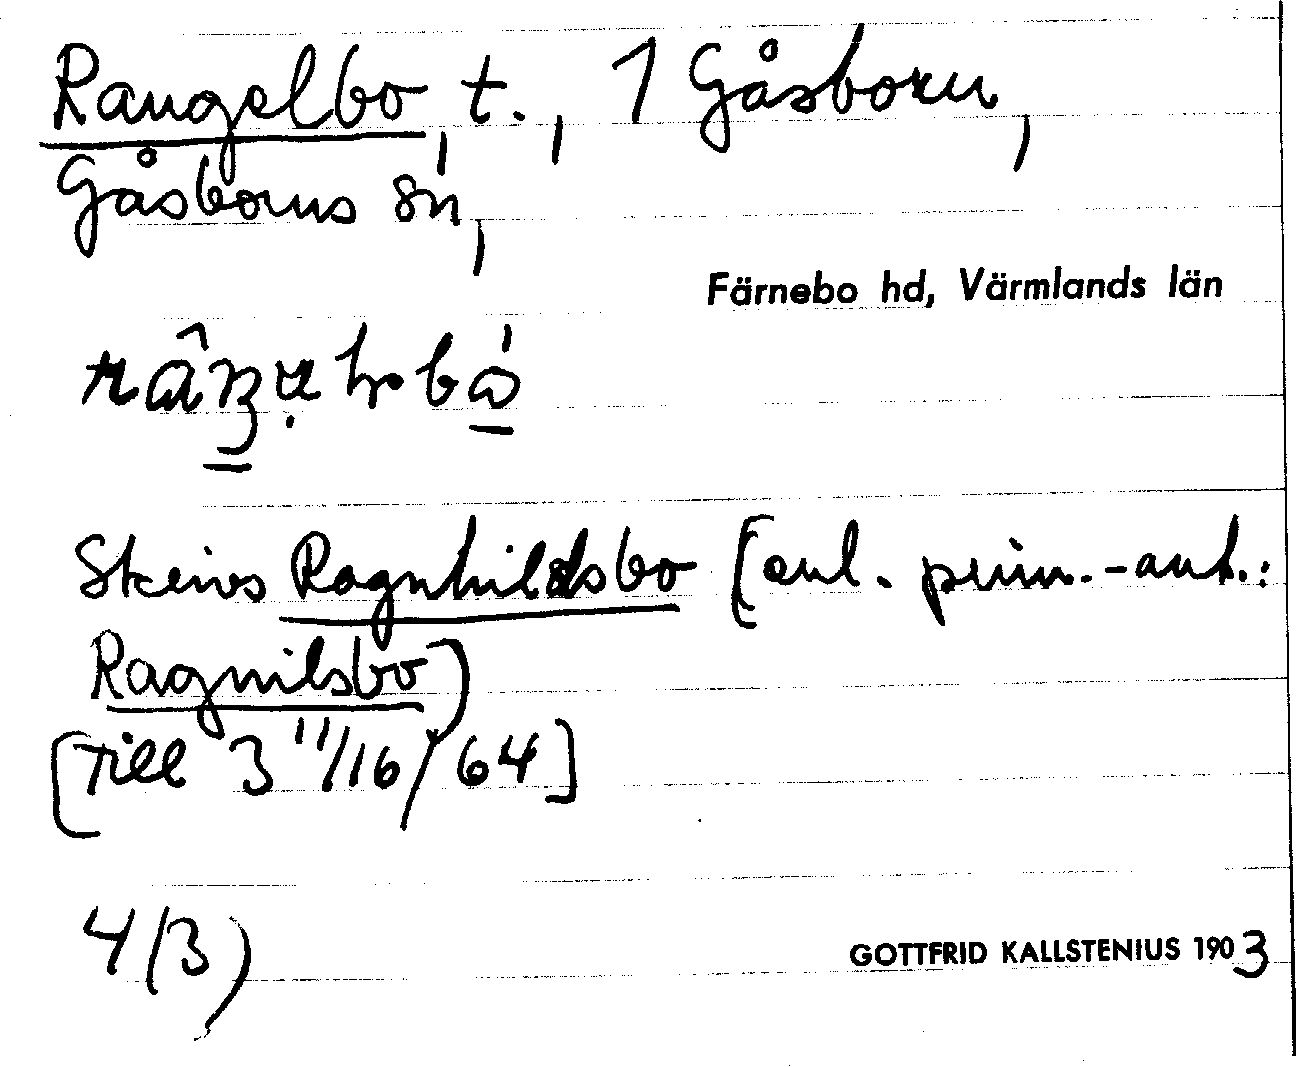 Rangelbo, t., 1 Gåsborn,
Gåsborns sn,
Färnebo hd, Värmlands län
Skrivs Ragnhildsbo (enl. prim.-ant.:
Ragnilsbo)
[Till 3 11/16/ 64]
4(3)
GOTTFRID KALLSTENIUS 1903